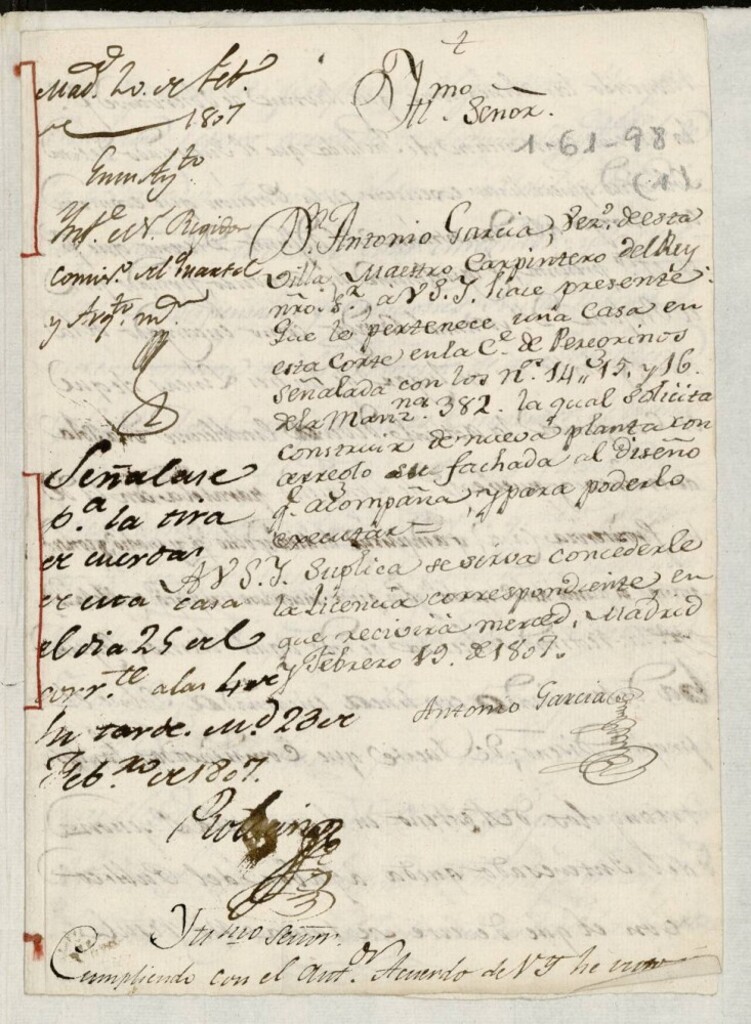 Mad.^d 20. de Feb.^o
de 1807
En su Ay.^to
Inf.^e el S.^r Regidor
Comis.^o del Quartel
y Arq.^to m.^r
Señalase
p.^a la tira
de cuerdas
de esta casa
el dia 25 del
corr.^te a las 4 de
la tarde. M.^d 23 de
Feb.^ro de 1807.
+
Y^mo
Señor.
1-61-98
(1)
D.^n Antonio Garcia, Vez.^o de esta
Villa Maestro Carpintero del Rey
nro. S.^r, a V S. I. hace presente:
Que le pertenece una Casa en
esta Corte en la C.^e de Peregrinos
señalada con los n.^os 14, 15, y 16.
de la Manz.^na 382. la qual solicita
construir de nueva planta con
arreglo su fachada al diseño
q.^e acompaña, y para poderlo
executar
A V S. I. Suplica se sirva concederle
la licencia correspondiente en
que recivirá merced, Madrid
y Febrero 19. de 1807.
Antonio Garcia
Yttmo Señor.
Cumpliendo con el ant.^or Acuerdo de V I he